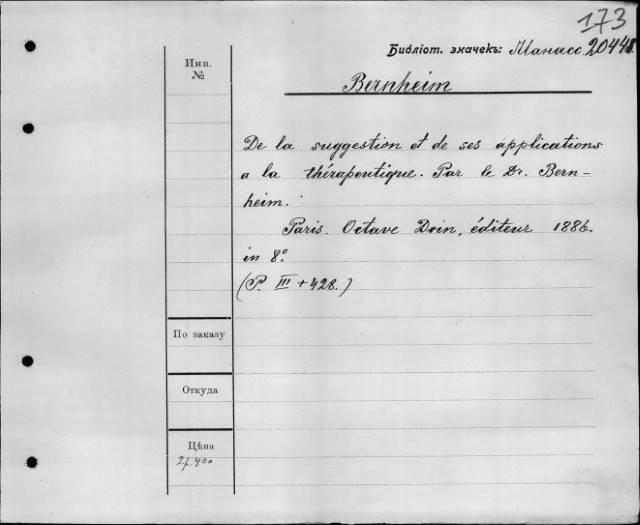 173
Библіот. значекъ: Манасс. 20448.
Инв.
№
Bernheim
De la suggestion et de ses applications
a la thérapeutique. Par le Dr. Bern-
heim.
Paris. Octave Doin, éditeur 1886.
in 8º
(P. III + 428.)
По заказу
Откуда
Цѣна
2р. 40к